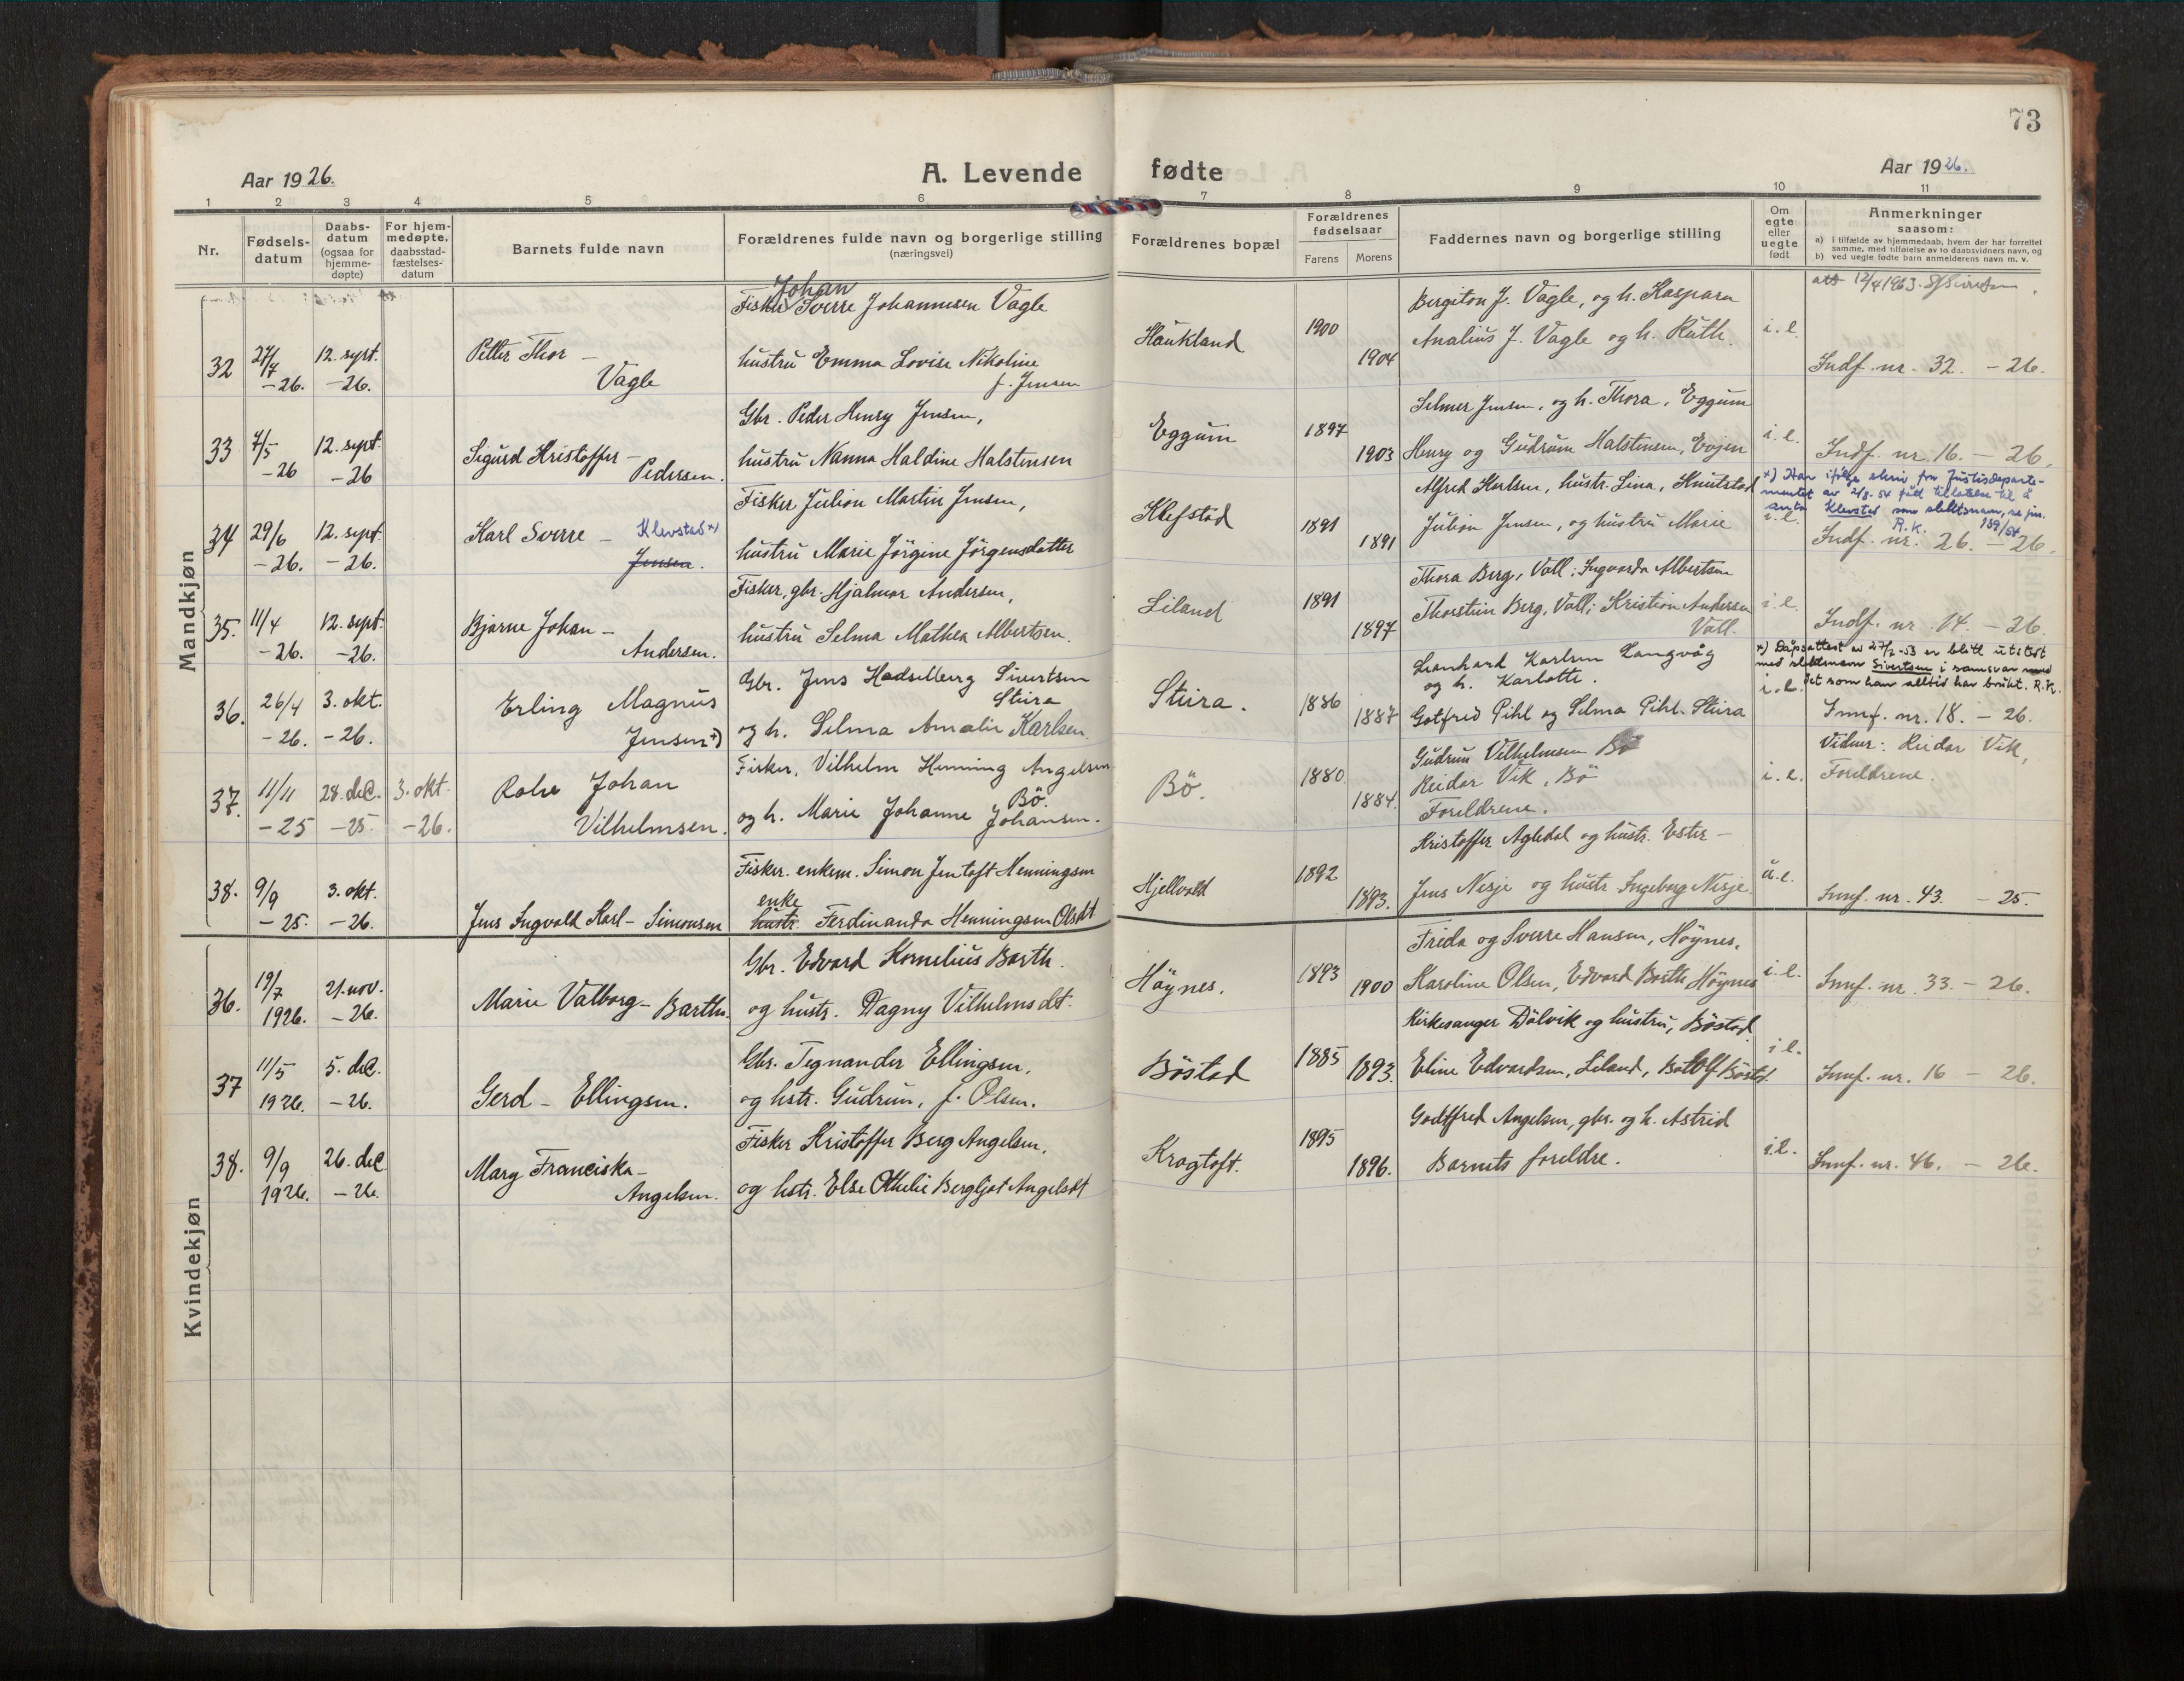 73
Aar 1926.
A. Levende fødte
Aar 1926.
1 2 3 4 5 6 7 8 9 10 11
Nr.
Fødsels-
datum
Daabs-
datum
(ogsaa for
hjemme-
døpte)
For hjem-
medøpte,
daabsstad-
fæstelses-
datum
Barnets fulde navn
Forældrenes fulde navn og borgerlige stilling
(næringsvei)
Forældrenes bopæl
Forældrenes
fødselsaar
Farens Morens
Faddernes navn og borgerlige stilling
Om
egte
eller
uegte
født
Anmerkninger
saasom:
a) i tilfælde av hjemmedaab, hvem der har forrettet
samme, med tilføielse av to daabsvidners navn, og
b) ved uegte fødte barn anmelderens navn m. v.
Mandkjøn
att 12/4 1963.
32 27/7 -26. 12. sept. -26.
Petter Thor -
Vagle
Johan
Fisker Sverre Johannesen Vagle
hustru Emma Lovise Nikoline
f. Jensen
Haukland
1900
1904
Bergiton J. Vagle, og h. Kaspara
Analius J. Vagle og h. Ruth.
i. e.
Indf. nr. 32. - 26.
33 7/5 -26 12. sept. -26
Sigurd Kristoffer -
Pedersen.
Gbr. Peder Henry Jensen,
hustru Nanna Haldine Halstensen
Eggum
1897
1903
Selmer Jensen, og h. Thora, Eggum
Henry og Gudrun Halstensen, Evjen
i. e.
Indf. nr. 16. - 26.
34 29/6 -26. 12. sept. -26.
Karl Sverre - Klevstad x)
Jensen.
Fisker Julian Martin Jensen,
hustru Marie Jörgine Jörgensdatter
Klefstad
1891
1891
Alfred Karlsen, hustr. Lina, Knutstad
Julian Jensen, og hustru Marie
i. e.
x) Har ifölge skriv fra Justisdeparte-
mentet av 2/8. 54 fått tillatelse til å
anta Klevstad som slektsnavn, se jnr.
R.K. 189/54
Indf. nr. 26. - 26.
35. 11/4 -26. 12. sept. -26.
Bjarne Johan -
Andersen.
Fisker, gbr. Hjalmar Andersen,
hustru Selma Mathea Albertsen.
Liland
1891
1897
Thora Berg, Voll; Ingvarda Albertsen
Thorstein Berg, Voll; Kristian Andersen
Voll.
i. e.
Indf. nr. 14. - 26.
36. 26/4 -26. 3. okt. -26.
Erling Magnus
Jensen x)
Gbr. Jens Hadselberg Sivertsen
Stura
og h. Selma Amalie Karlsen.
Stura.
1886
1887
Leonhard Karlsen Langvåg
og h. Karlotte.
Gotfred Pihl og Selma Pihl. Stura
i. e.
x) Dåpsattest av 27/2-53 er blitt utstedt
med slektsnavn Sivertsen i samsvar med
det som han alltid har brukt. R.K.
Innf. nr. 18. - 26.
37. 11/11 -25 28. dec. -25. 3. okt. -26.
Rolv Johan
Vilhelmsen.
Fisker, Vilhelm Henning Angelsen
Bö.
og h. Marie Johanne Johansen.
Bö.
1880.
1884.
Gudrun Vilhelmsen Bö
Reidar Vik, Bö
Foreldrene.
i. e.
Vidner: Reidar Vik,
Foreldrene.
38. 9/9 -25. 3. okt. -26.
Jens Ingvald Karl - Simonsen
Fisker. enkem. Simon Jentoft Henningsen
enke
hustr. Ferdinanda Henningsen Olsdt
Hjellvold
1892
1893.
Kristoffer Agledal og hustr. Ester -
Jens Nesje og hustr Ingeborg Nesje.
u. e.
Innf. nr. 43. - 25.
Kvindekjøn
36. 19/7 1926. 21. nov. -26.
Marie Valborg - Barth.
Gbr. Edvard Kornelius Barth.
og hustr. Dagny Vilhelmsdt.
Höynes.
1893
1900
Frida og Sverre Hansen, Höynes,
Karoline Olsen, Edvard Barth Höynes
i. e.
Innf. nr. 33. - 26.
37 11/5 1926. 5. dec. -26.
Gerd - Ellingsen.
Gbr. Tegnander Ellingsen,
og hstr. Gudrun, f. Olsen.
Böstad
1885
1893.
Kirkesanger Dalvik og hustru, Böstad
Eline Edvardsen, Liland, Botolf Böstad.
i. e.
Innf. nr. 16 - 26.
38. 9/9 1926. 26. dec -26.
Mary Franciska -
Angelsen.
Fisker Kristoffer Berg Angelsen,
og hstr. Else Othelie Bergljot Angelsdt
Krogtoft.
1895
1896.
Godtfred Angelsen, gbr. og h. Astrid
Barnets foreldre.
i. e.
Innf. nr. 46. - 26.